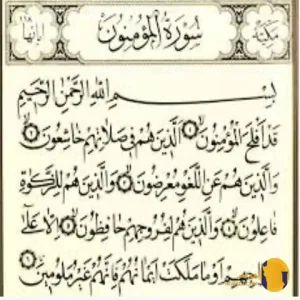 مكية سُورَةُ الْمُؤْمِنُونَ آياتها ١١٨
بِسْمِ اللَّهِ الرَّحْمَٰنِ الرَّحِيمِ
قَدْ أَفْلَحَ الْمُؤْمِنُونَ ۝١ الَّذِينَ هُمْ فِي صَلَاتِهِمْ خَاشِعُونَ ۝٢
وَالَّذِينَ هُمْ عَنِ اللَّغْوِ مُعْرِضُونَ ۝٣ وَالَّذِينَ هُمْ لِلزَّكَوٰةِ
فَاعِلُونَ ۝٤ وَالَّذِينَ هُمْ لِفُرُوجِهِمْ حَافِظُونَ ۝٥ إِلَّا عَلَىٰ
أَوْ مَا مَلَكَتْ أَيْمَانُهُمْ فَإِنَّهُمْ غَيْرُ مَلُومِينَ ۝٦